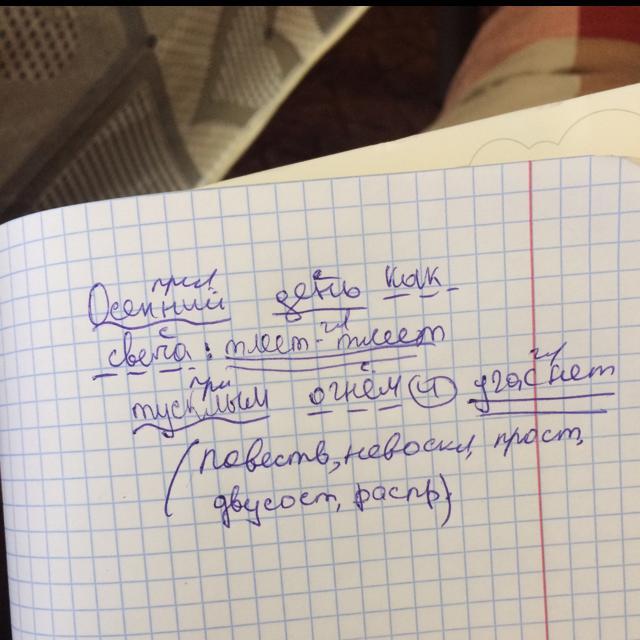 прил с
Осенний день как
с гл
свеча: тлеет-тлеет
при с гл
тусклым огнём и угаснет
(повеств, невоскл, прост,
двусост, распр)